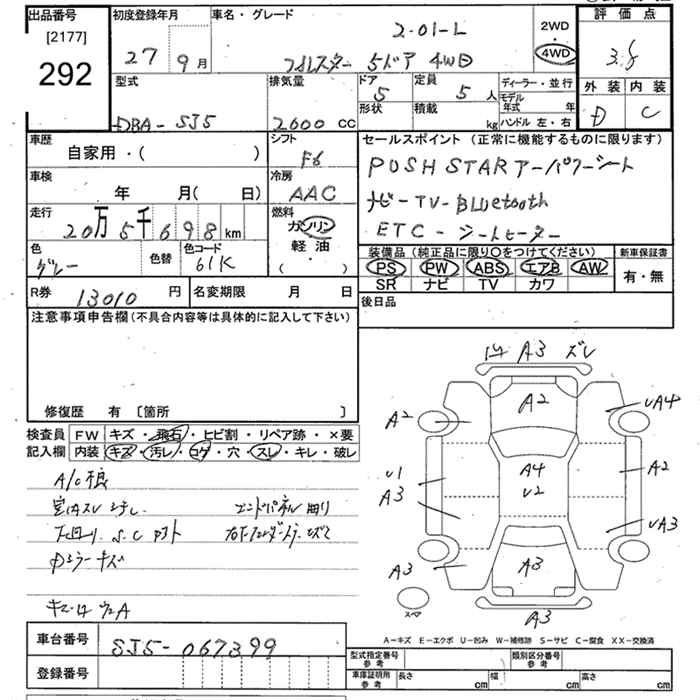 出品番号
[2177]
292
初度登録年月
27年 9月
車名・グレード
2.0i-L
フォレスター 5ドア 4WD
2WD
・
4WD
評価点
3.5
外装 内装
D C
型式
DBA-SJ5
排気量
2000 CC
ドア
5
定員
5人
形状
積載
kg
ディーラー・並行
モデル年式 年
ハンドル 左・右
車歴
自家用・( )
シフト
F6
車検
年 月( 日)
冷房
AAC
走行
20万5千698km
燃料
ガソリン
軽油
・( )
色
グレー
色替
色コード
61K
R券
13010円
名変期限 月 日
セールスポイント (正常に機能するものに限ります)
PUSH STAR パワーシート
ナビ-TV-Bluetooth
ETC-シートヒーター
装備品 (純正品に限り○をつけてください)
新車保証書
PS PW ABS エアB AW
SR ナビ TV カワ
有・無
後日品
注意事項申告欄(不具合内容等は具体的に記入して下さい)
修復歴 有 〔箇所 〕
検査員 FW キズ・飛石・ヒビ割・リペア跡・×要
記入欄 内装 キズ・汚レ・コゲ・穴・スレ・キレ・破レ
A/C不良
室内スレ
エンドパネル曲り
下回り S.C
キズ
A3 ズレ
A2
A2
UA4
A4
U2
U1
A3
A2
UA3
A3
A3
スペア
A3
A－キズ E－エクボ U－凹み W－補修跡 S－サビ C－腐食 XX－交換済
車台番号
SJ5-067399
登録番号
型式指定番号 参考
類別区分番号 参考
車庫証明用 参考
長さ cm
幅 cm
高さ cm